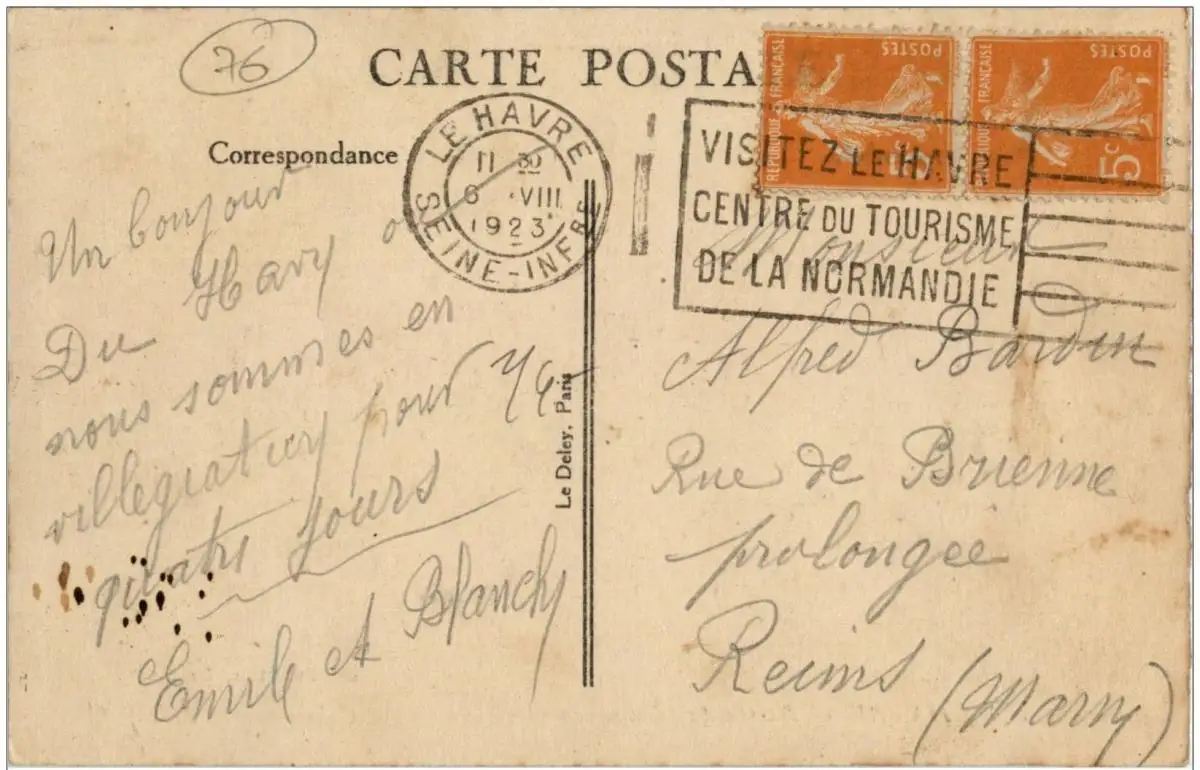 76
CARTE POSTA
Correspondance
LE HAVRE
11 30
6 VIII
1923
SEINE-INFRE
VISITEZ LE HAVRE
CENTRE DU TOURISME
DE LA NORMANDIE
REPUBLIQUE FRANÇAISE
POSTES
POSTES
5c
Un bonjour
Du Havre
nous sommes en
villegiature pour
quatre jours
Emile et Blanche
Le Deley, Paris
Monsieur
Alfred Bardin
Rue de Brienne
prolongée
Reims
(Marne)